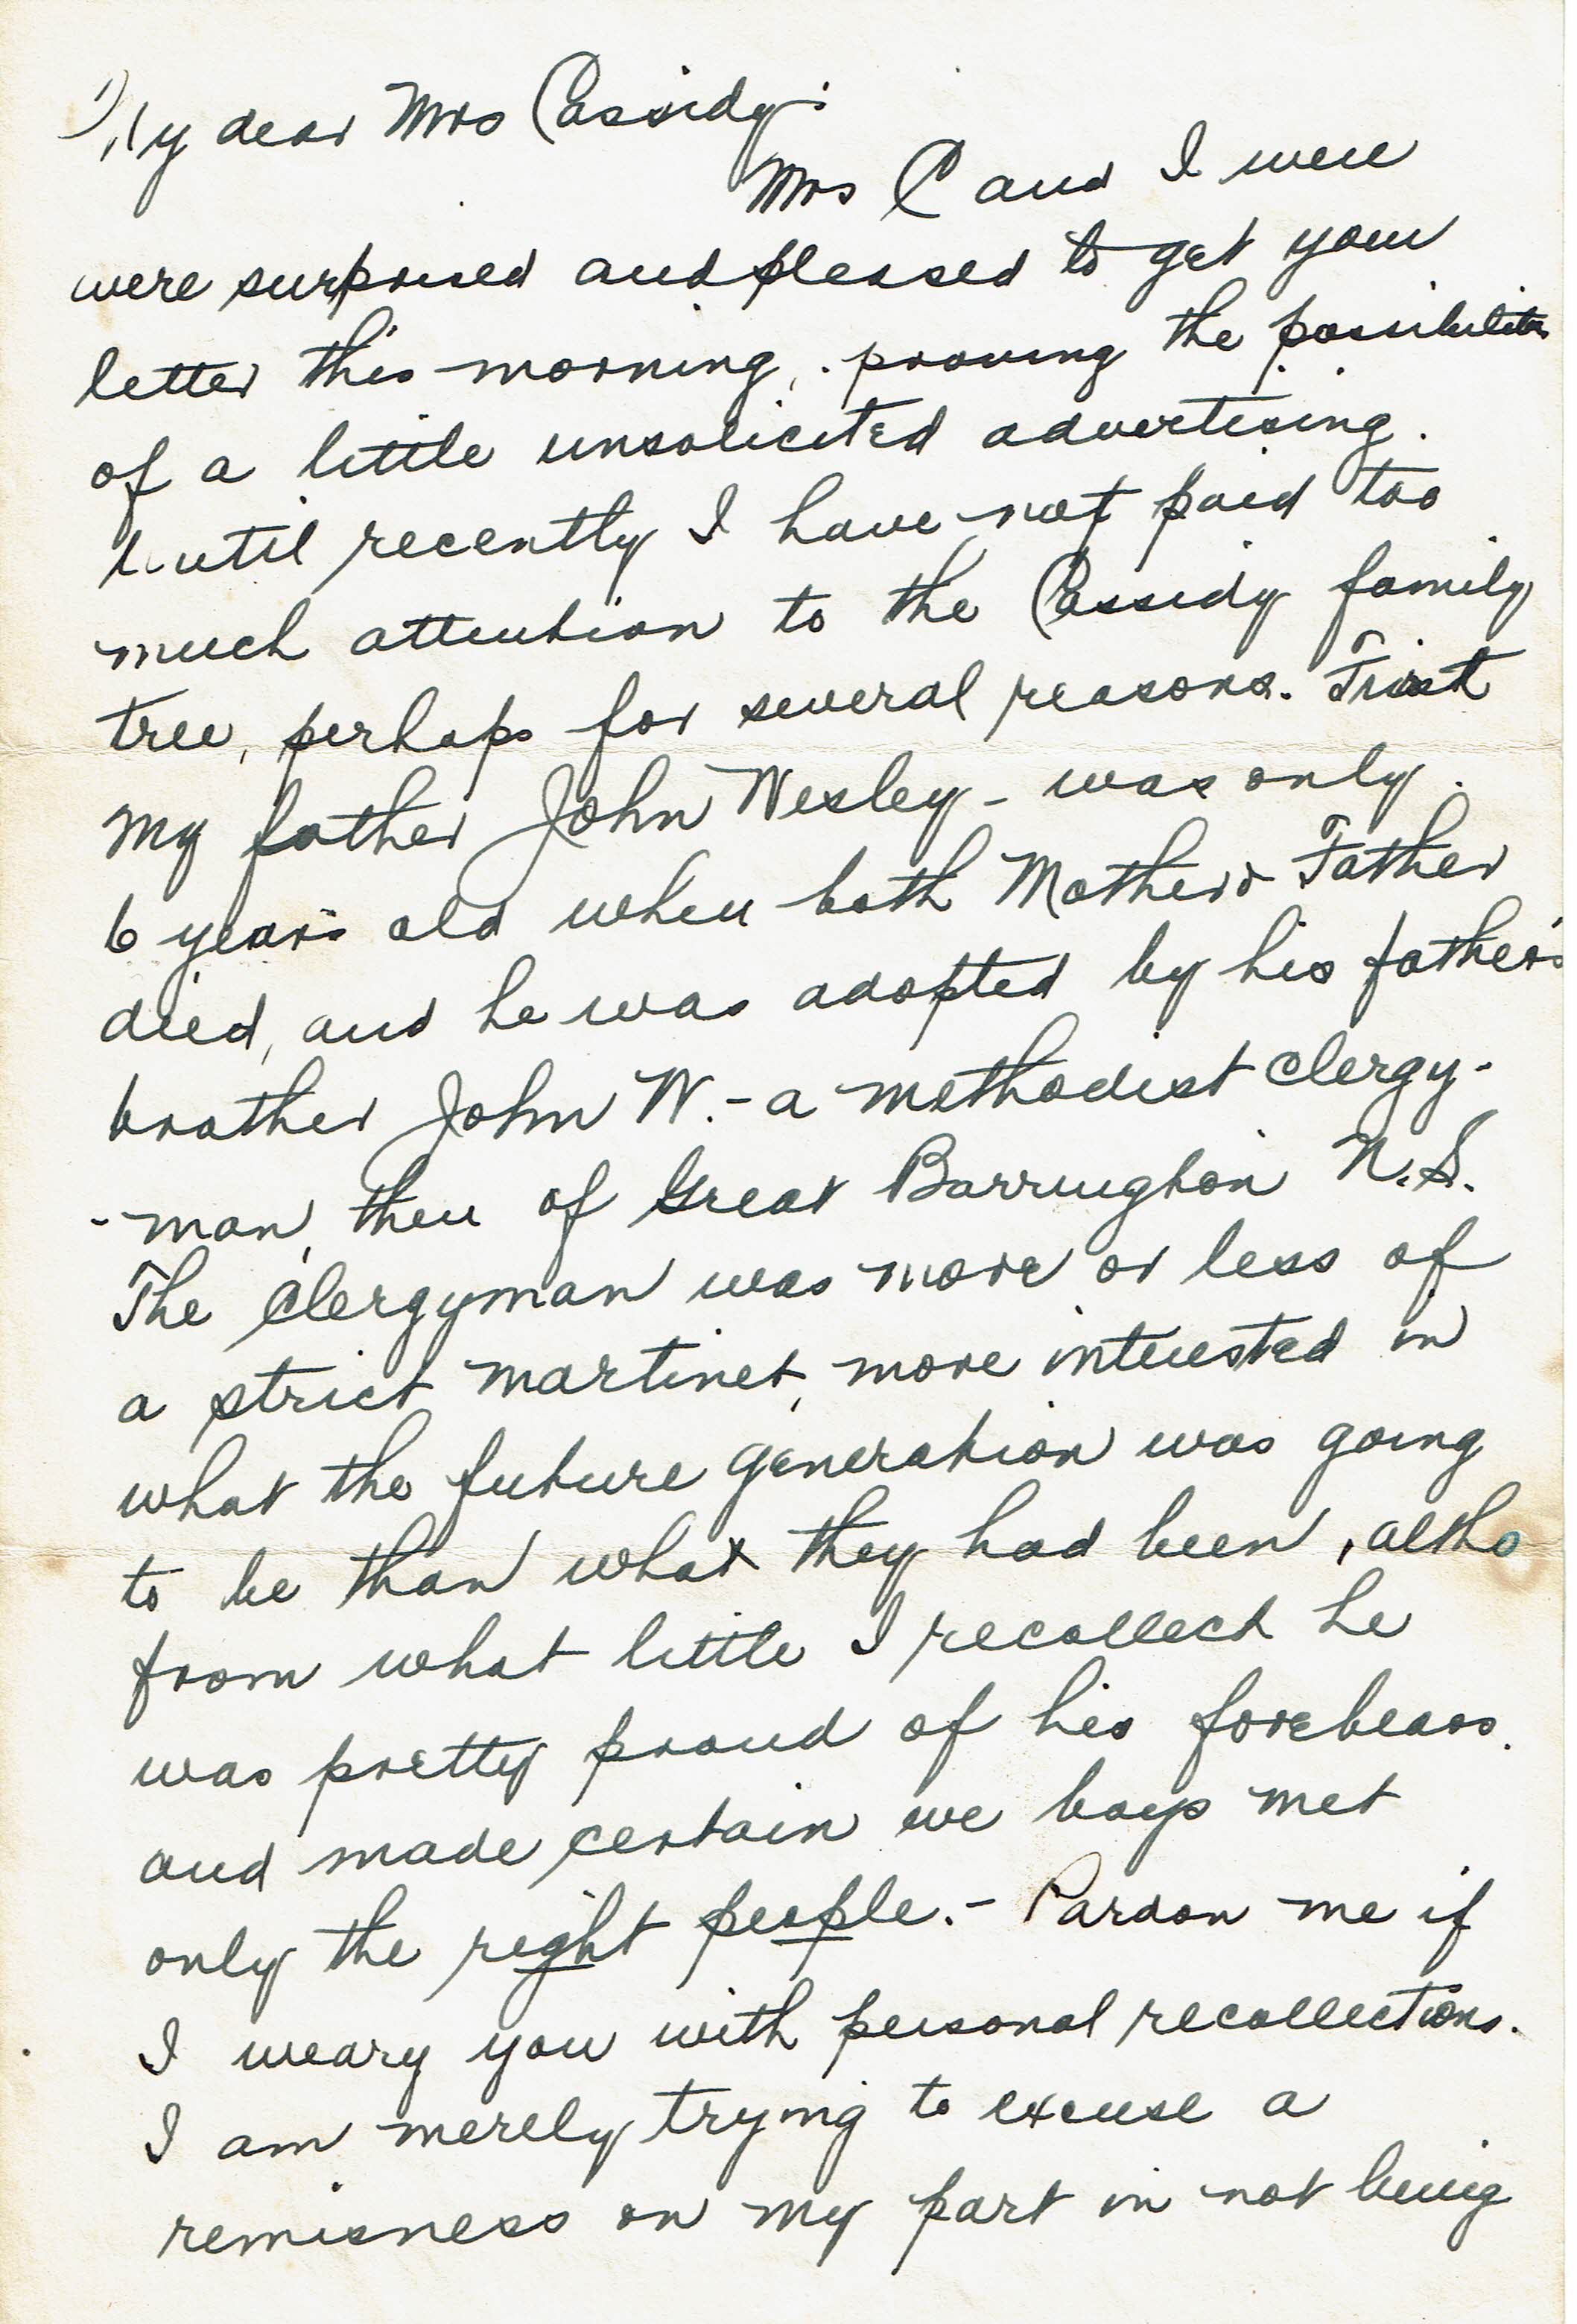 My dear Mrs Cassidy:
Mrs C and I were
were surprised and pleased to get your
letter this morning, proving the possibilities
of a little unsolicited advertising.
Until recently I have not paid too
much attention to the Cassidy family
tree, perhaps for several reasons. First
my father John Wesley - was only
6 years old when both Mother & Father
died, and he was adopted by his father's
brother John W. - a methodist clergy-
-man, then of Great Barrington N.S.
The Clergyman was more or less of
a strict martinet, more interested in
what the future generation was going
to be than what they had been, altho
from what little I recollect he
was pretty proud of his forebears.
and made certain we boys met
only the right people. - Pardon me if
I weary you with personal recollections.
I am merely trying to excuse a
remisness on my part in not being